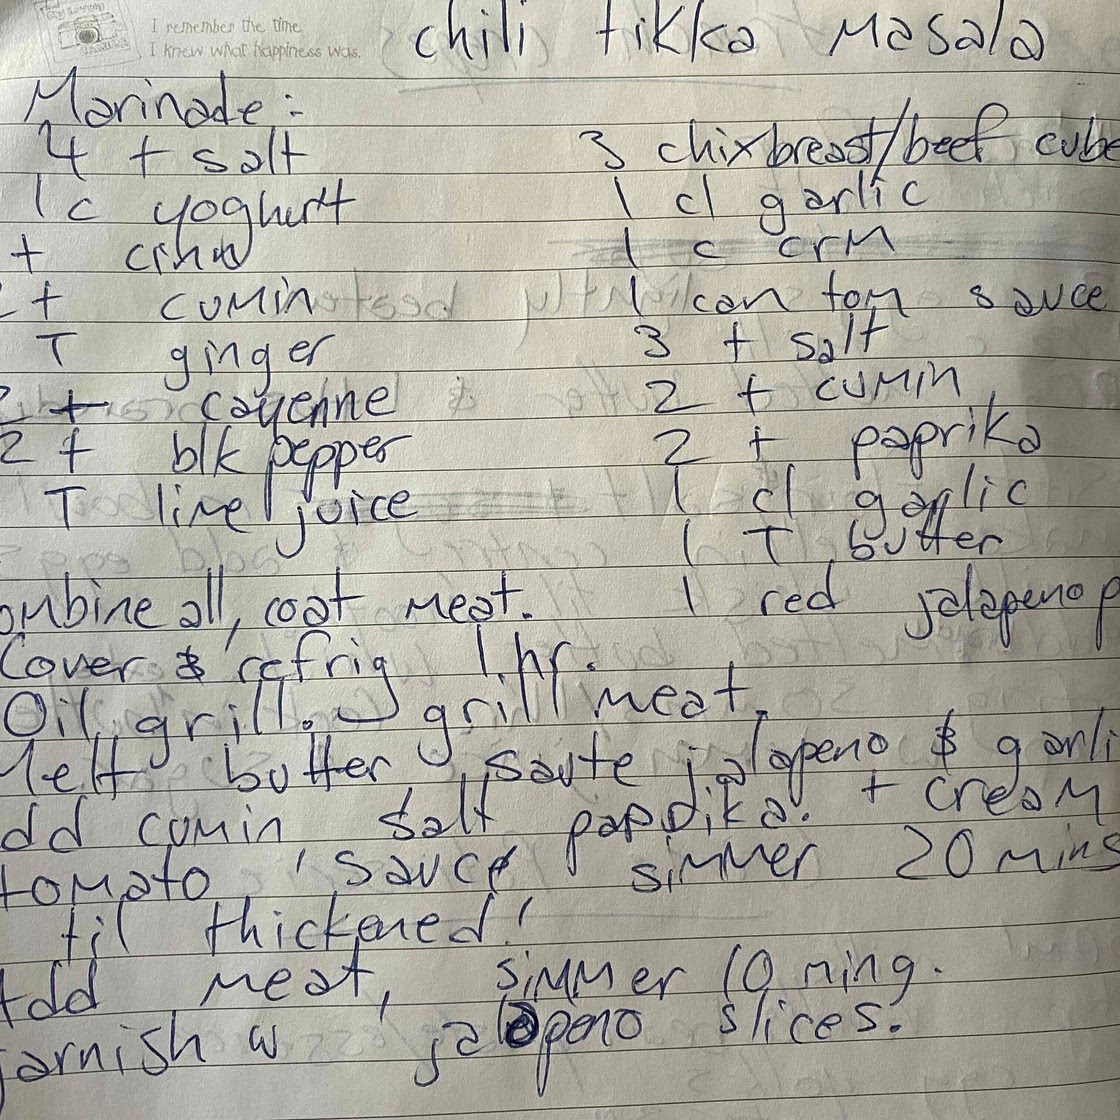 I remember the time
I knew what happiness was.
chili tikka Masala
Marinade:
4 t salt
1 c yoghurt
t
t cumin
T ginger
2 t cayenne
2 t blk pepper
T lime juice
3 chix breast/beef cube
1 cl garlic
1 c crm
1 can tom sauce
3 t salt
2 t cumin
2 t paprika
1 cl garlic
1 T butter
1 red jalapeno p
ombine all, coat meat.
Cover & refrig 1 hr.
Oil grill. grill meat.
Melt butter, saute jalapeno & garli
dd cumin salt paprika. + cream
tomato sauce simmer 20 mins
til thickened!
Add meat, simmer 10 mins.
garnish w jalapeno slices.